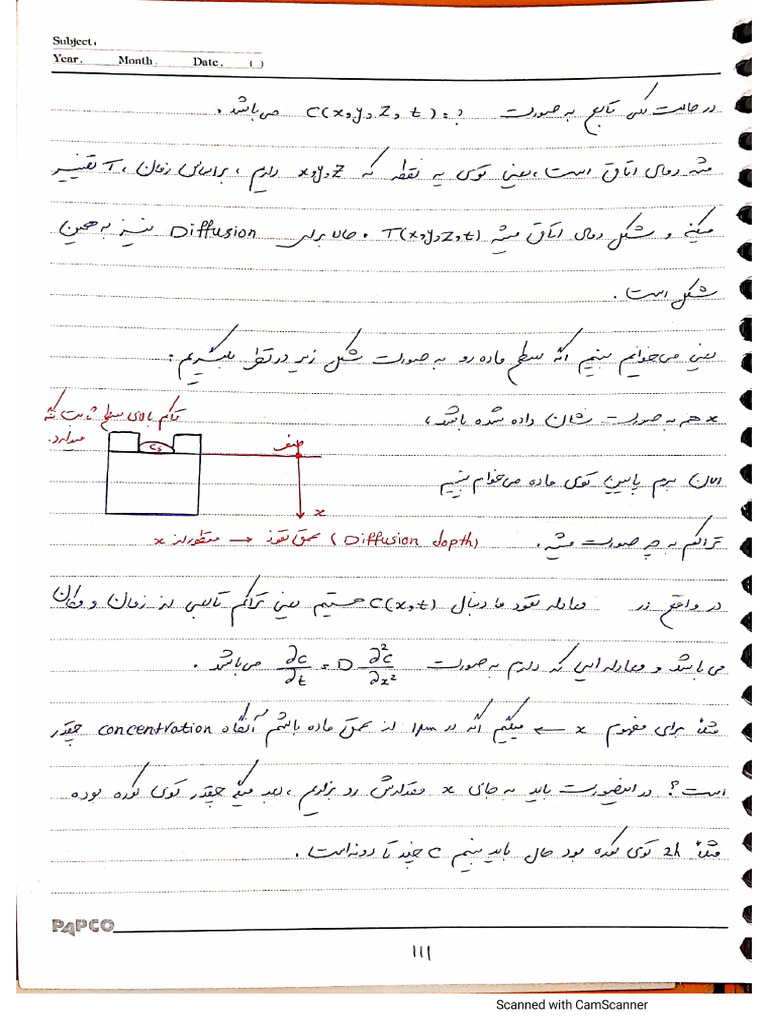 Subject.
Year. Month. Date. ( )
در حالت کلی تابع به صورت C(x,y,z,t)=? می باشد.
مثلا دمای اتاق است، یعنی توی یه نقطه که x,y,z داریم، براساس زمان، T تغییر
میکنه و شکل دمای اتاق میشه T(x,y,z,t). حالا برای Diffusion نیز به همین
شکل است.
یعنی می خوایم ببینیم اگه سطح ماده رو به صورت شکل زیر در نظر بگیریم:
x هم به صورت نشان داده شده باشد،
تراکم بالای سطح ثابت نگه
میداره.
Cs
صفر
x
الان برم پایین توی ماده می خوام ببینم
تراکم به چه صورت میشه.
عمق نفوذ (Diffusion depth) → منظور از x
در واقع در معادله نفوذ ما دنبال C(x,t) هستیم یعنی تراکم تابعی از زمان و مکان
می باشد و معادله ایی که داریم به صورت ∂c/∂t = D ∂²c/∂x² می باشد.
مثلا برای مفهوم x ← میگیم اگه در 1μm از عمق ماده باشم آنگاه concentration چقدر
است؟ در اینصورت باید به جای x مقدارش رو بزاریم، بعد میگه چقدر توی کوره بوده
مثلا 2h توی کوره بود حال باید ببینم C چند تا رونده است.
PAPCO
111
Scanned with CamScanner